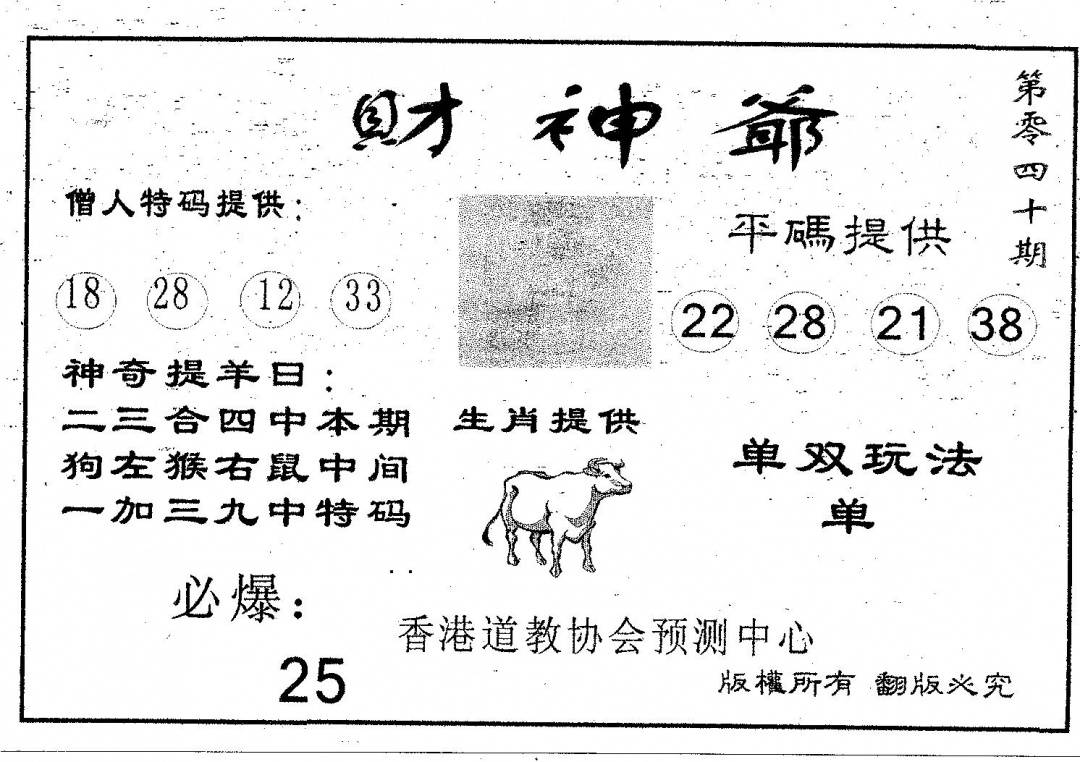 財神爺
第零四十期
僧人特码提供：
18 28 12 33
平碼提供
22 28 21 38
神奇提羊日：
二三合四中本期
狗左猴右鼠中间
一加三九中特码
生肖提供
单双玩法
单
必爆：
25
香港道教协会预测中心
版權所有 翻版必究